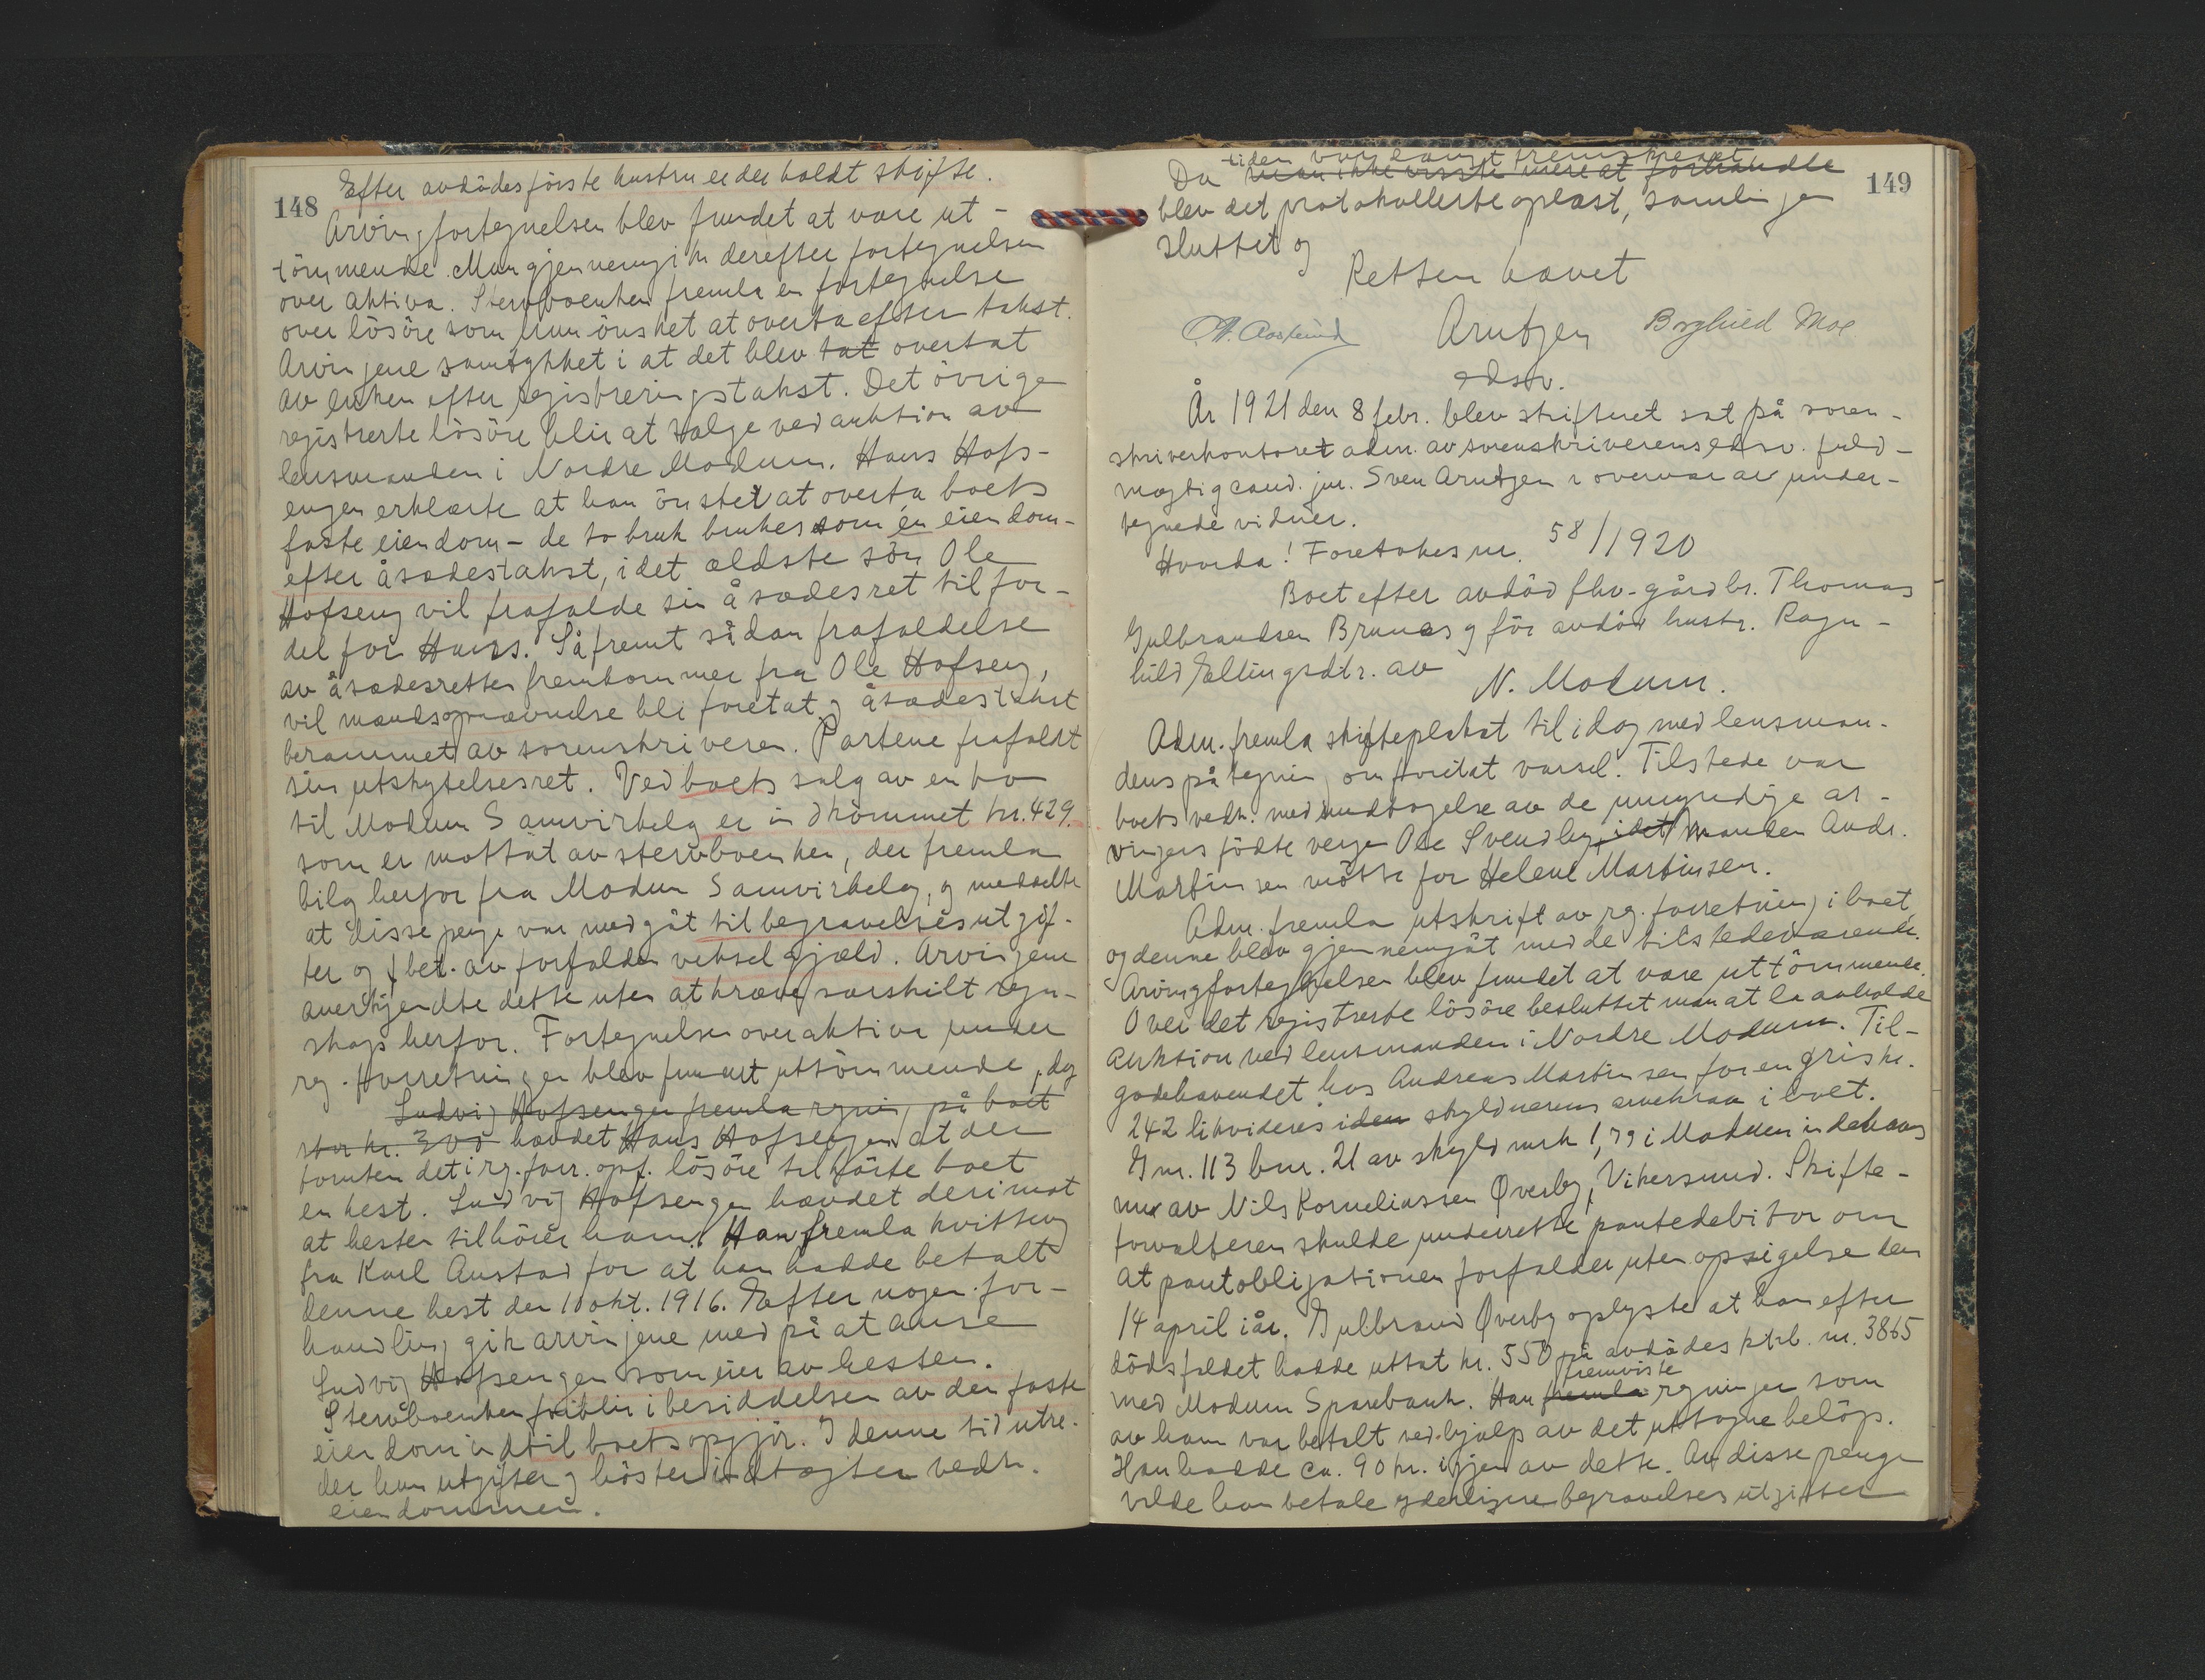 148
Efter avdödes förste hustru er der holdt skifte.
Arvingfortegnelsen blev fundet at være ut-
tömmende. Man gjennemgik derefter fortegnelsen
over aktiva. Stervboenken fremla en fortegnelse
over lösöre som hun önsket at overta efter takst.
Arvingene samtykket i at det blev tat overtat
av enken efter registreringstakst. Det övrige
registrerte lösöre blir at sælge ved auktion av
lensmanden i Nordre Modum. Hans Hofs-
engen erklærte at han önsket at overta boets
faste eiendom - de to bruk brukes som én eiendom -
efter åsædestakst, idet ældste sön Ole
Hofseng vil frafalde sin åsædesret til for-
del for Hans. Såfremt sådan frafaldelse
av åsædesretten fremkommer fra Ole Hofseng,
vil mandsopnævnelse bli foretat og åsædestakst
berammet av sorenskriveren. Partene frafaldt
sin utskytelsesret. Ved boets salg av en ko
til Modum Samvirkelag er indkommet kr. 429.
som er mottat av stervboenken, der fremla
bilag herfor fra Modum Samvirkelag, og meddelte
at disse penge var medgåt til begravelsesutgif-
ter og bet. av forfalden vekselgjæld. Arvingene
anerkjendte dette uten at kræve særskilt regn-
skap herfor. Fortegnelsen over aktiva under
reg. forretningen blev funnet uttömmende, dog
Ludvig Hofsengen fremla regning på boet
stor kr. 300 hævdet Hans Hofsengen at der
foruten det i rg. forr. opf. lösöre tilhörte boet
en hest. Ludvig Hofsengen hævdet derimot
at hesten tilhörer ham. Han fremla kvittering
fra Karl Austad for at han hadde betalt
denne hest den 10 okt. 1916. Efter nogen for-
handling gik arvingene med på at anse
Ludvig Hofsengen som eier av hesten.
Stervboenken forblir i besiddelsen av den faste
eiendom indtil boets opgjör. I denne tid utre-
der hun utgifter og höster indtægter vedk.
eiendommen.
149
tiden var langt fremskredet
Da man ikke visste mere at forhandle
blev det protokollerte oplæst, samlingen
sluttet og
Retten hævet
Arntzen Borghild Moe
edsv.
År 1921 den 8 febr. blev skifteret sat på soren-
skriverkontoret adm. av sorenskriverens edsv. fuld-
mægtig cand. jur. Sven Arntzen i overvær av under-
tegnede vidner.
Hvorda! Foretokes nr. 58/1920
Boet efter avdöd fhv. gårdbr. Thomas
Gulbrandsen Brunes og för avdöd hustr. Ragn-
hild Ellingsdtr. av
N. Modum.
Adm. fremla skifteplakat til idag med lensman-
dens påtegning om foretat varsel. Tilstede var
boets vedk. med undtagelse av de umyndige ar-
vingers födte verge Ole Svendby, idet Manden Andr.
Martinsen mötte for Helene Martinsen.
Adm. fremla utskrift av rg. forretning i boet,
og denne blev gjennemgåt med de tilstedeværende.
Arvingfortegnelsen blev fundet at være uttömmende.
Over det registrerte lösöre besluttet man at la avholde
auktion ved lensmanden i Nordre Modum. Til-
godehavendet hos Andreas Martinsen for en gris kr.
242 likvideres iden skyldnerens arvekrav i boet.
Gnr. 113 bnr. 21 av skyld mrk 1,79 i Modum indehaves
nu av Nils Korneliussen Øverby, Vikersund. Skifte-
forvalteren skulde underrette pantedebitor om
at pantobligationen forfalder uten opsigelse den
14 april iår. Gulbrand Øverby oplyste at han efter
dödsfaldet hadde uttat kr. 550 på avdödes ktrb. nr. 3865
fremviste
med Modum Sparebank. Han fremla regninger som
av ham var betalt ved hjælp av det uttagne belöp.
Han hadde ca. 90 kr. igjen av dette. Av disse penge
vilde han betale yderligere begravelsesutgifter